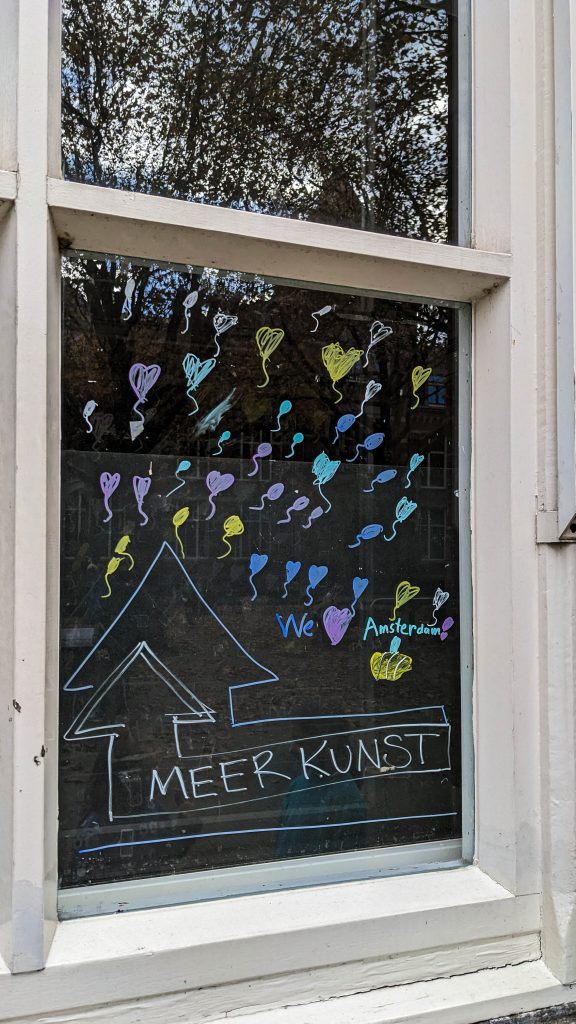 We Amsterdam!
MEER KUNST